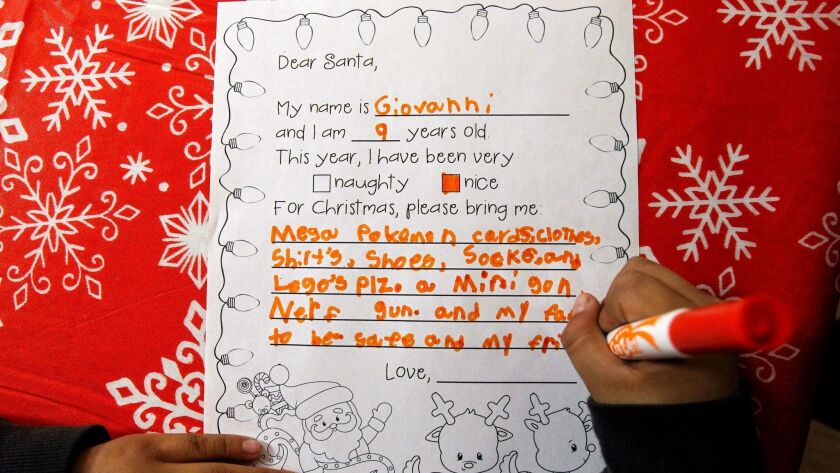 Dear Santa,
My name is Giovanni
and I am 9 years old.
This year, I have been very
naughty nice
For Christmas, please bring me:
Mega Pokemon cards, clothes,
Shirt's, Shoes, Socks, and
Lego's plz. a Mini gun
Nerf gun. and my fa
to be safe and my fri
Love,